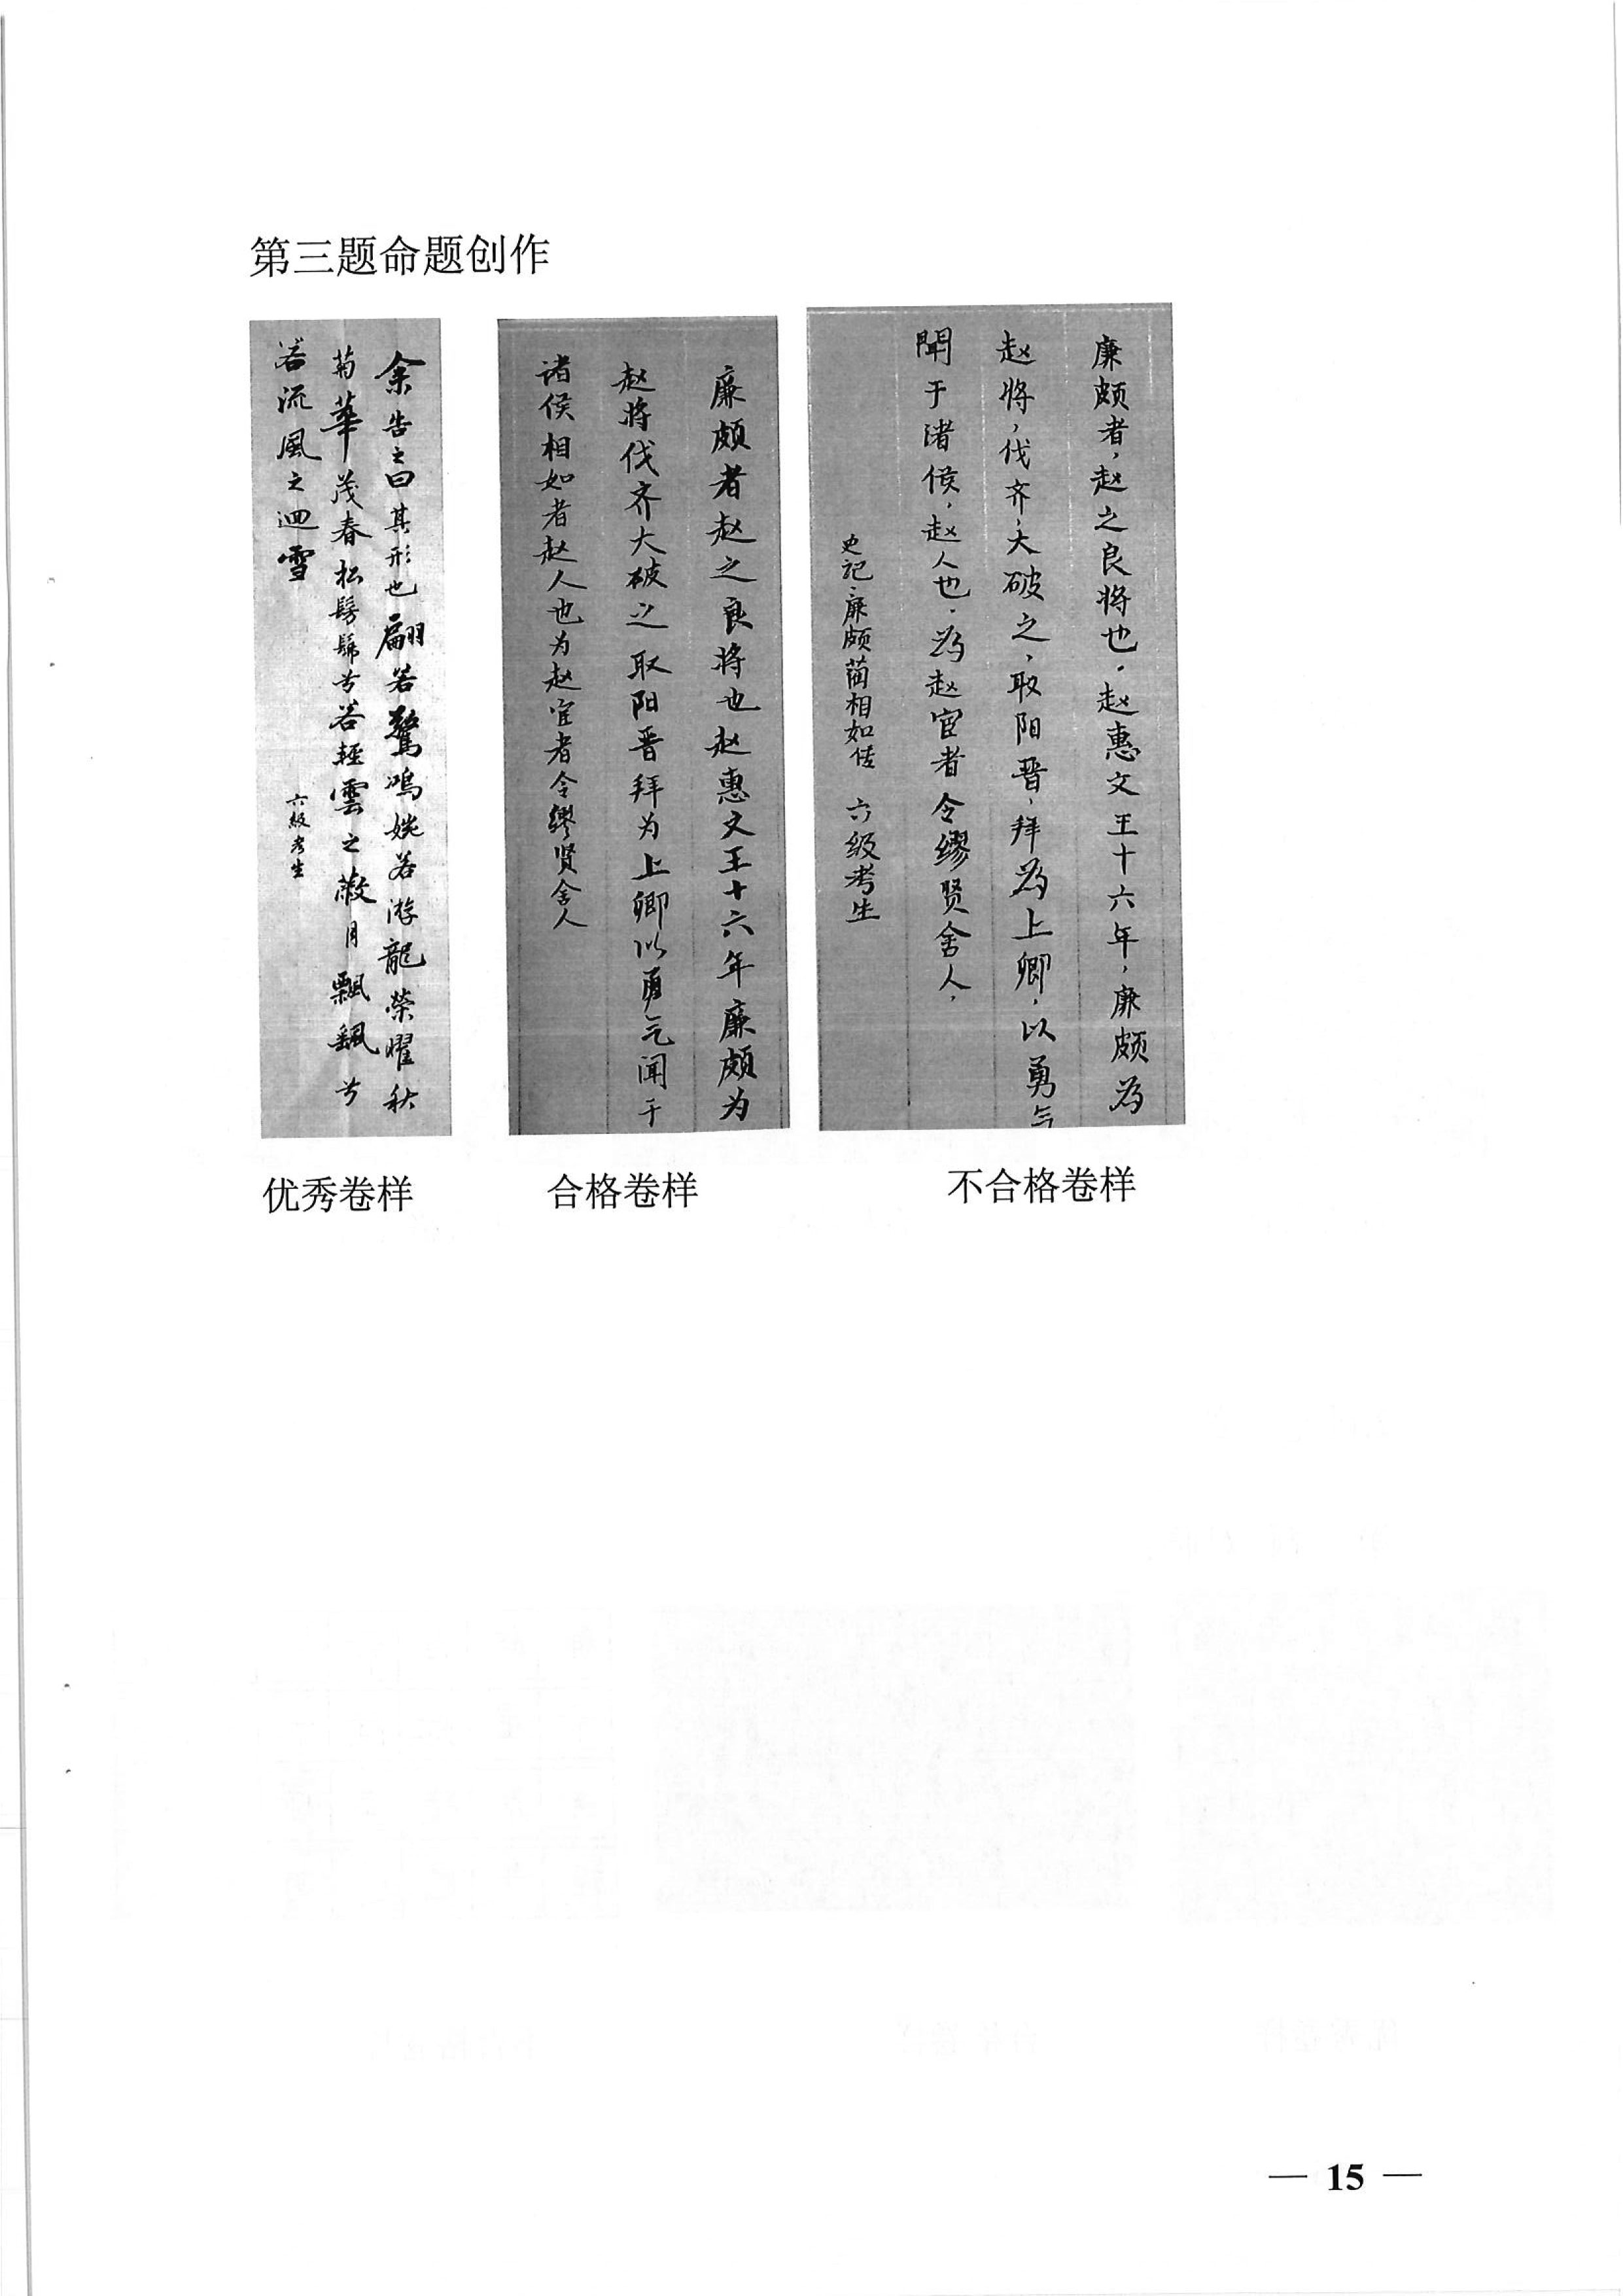 第三题命题创作
余告之曰其形也翩若驚鳴婉若游龍榮曜秋
菊華茂春松髣髴兮若輕雲之蔽月飄飖兮
若流風之迴雪
六級考生
优秀卷样
廉颇者赵之良将也赵惠文王十六年廉颇为
赵将伐齐大破之取阳晋拜为上卿以勇气闻于
诸侯相如者赵人也为赵宦者令缪贤舍人
合格卷样
廉颇者，赵之良将也。赵惠文王十六年，廉颇為
赵将，伐齐，大破之，取阳晋，拜為上卿，以勇气
聞于诸侯，赵人也。為赵宦者令缪贤舍人，
史記·廉颇蔺相如传 六级考生
不合格卷样
— 15 —